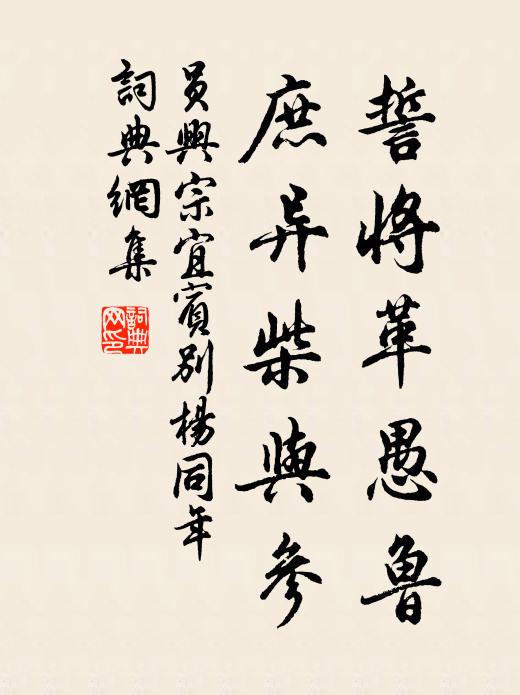 誓將革愚魯
庶异柴與參
员興宗宜賓別楊同年
詞典網集
詞典网印